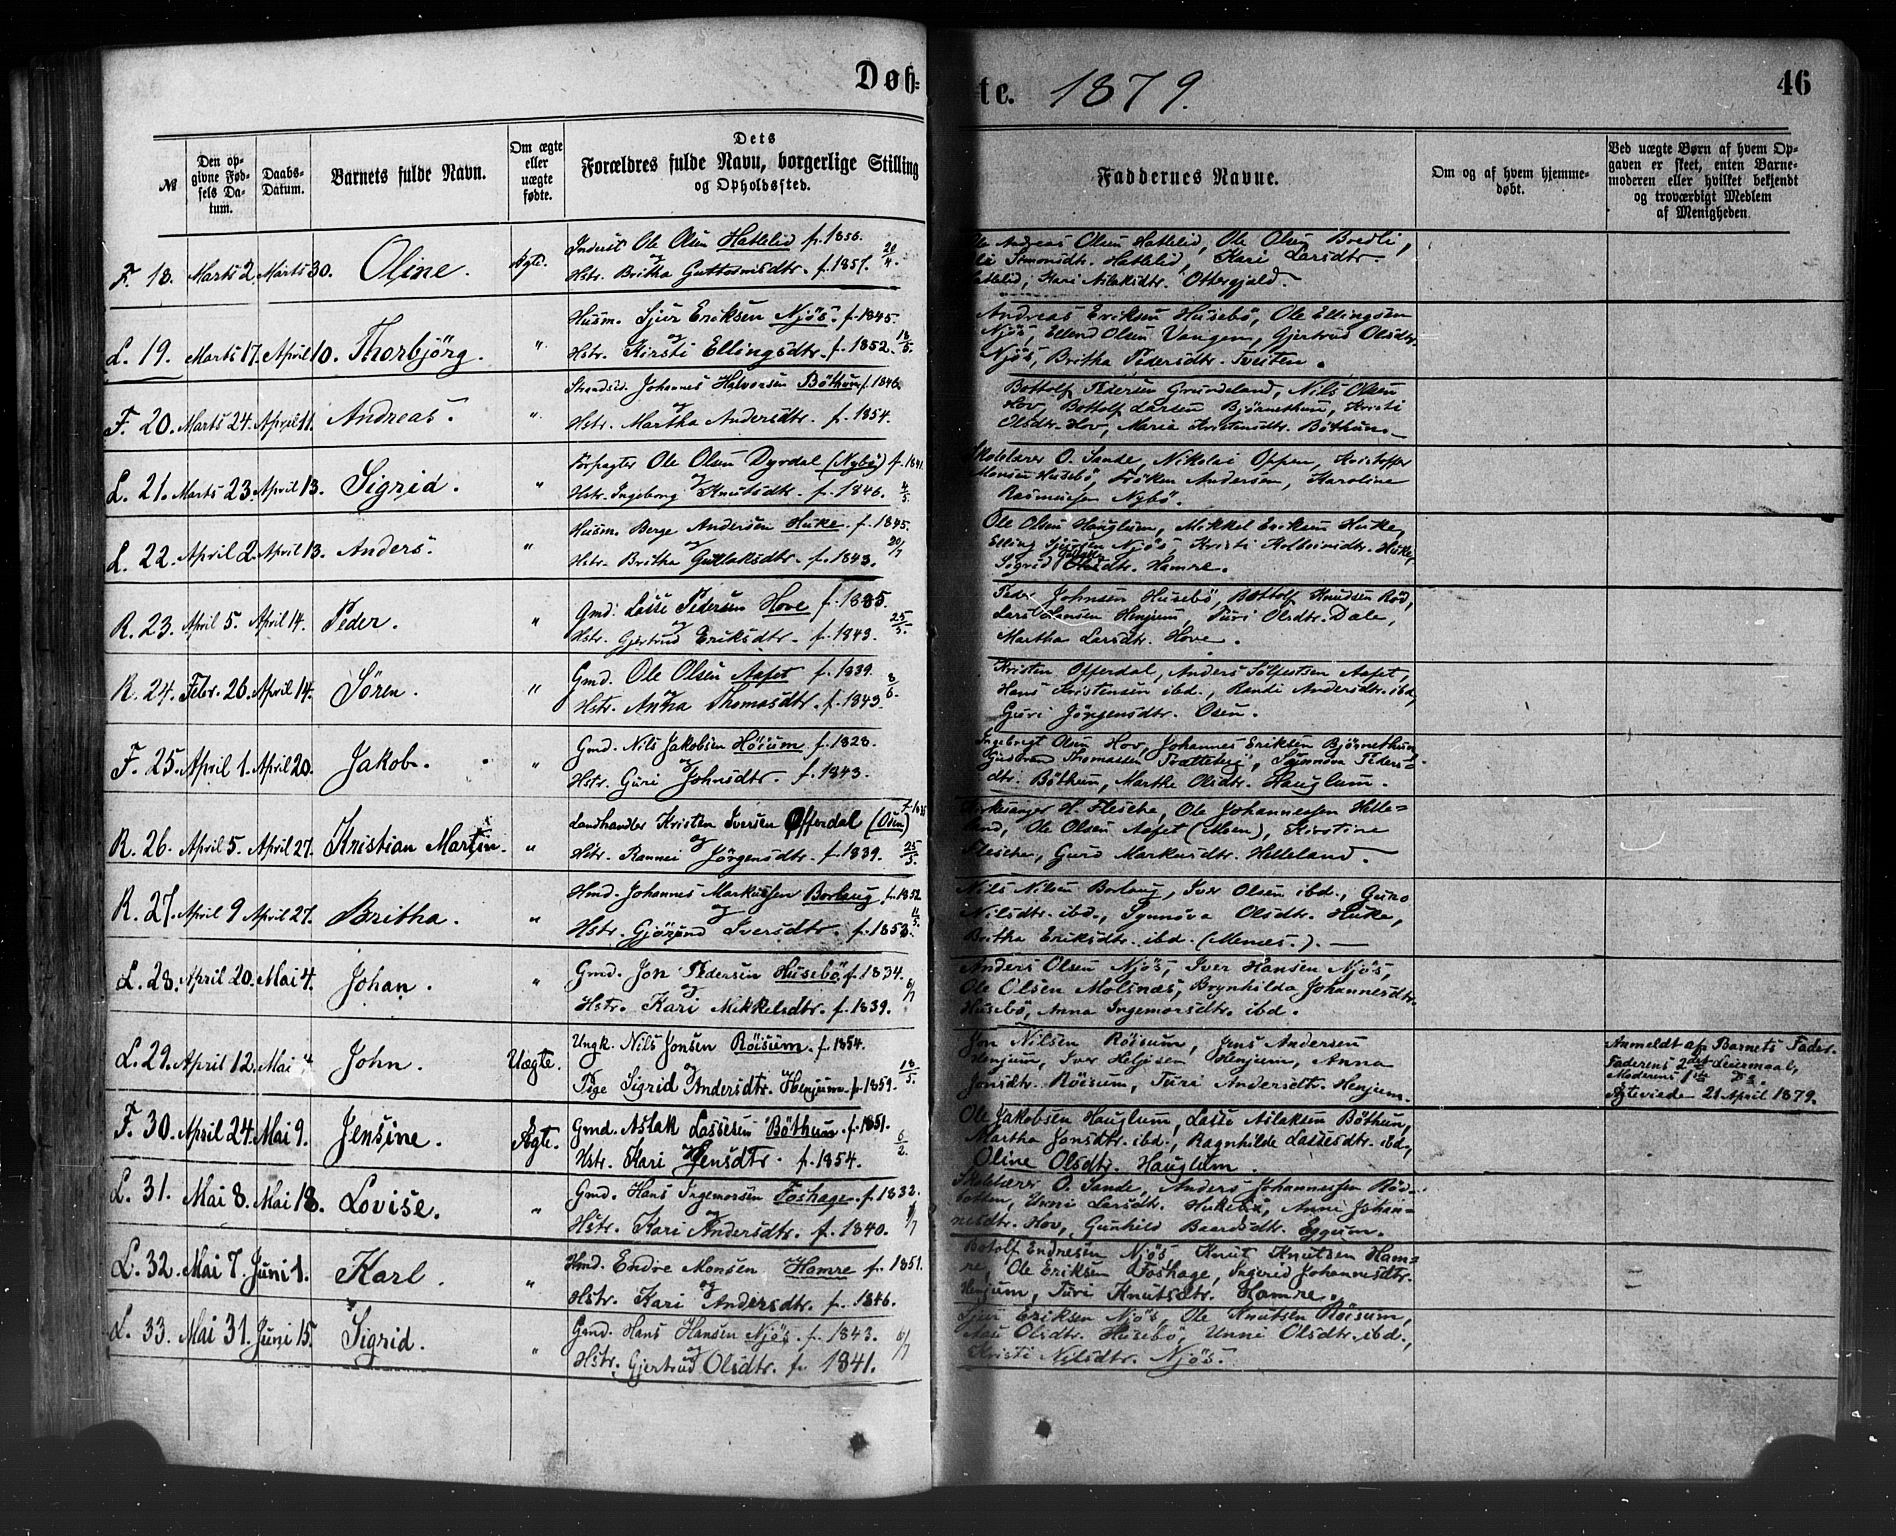 Døb-
te. 1879.
46
№
Den op-
givne Fød-
sels Da-
tum.
Daabs-
Datum.
Barnets fulde Navn.
Om ægte
eller
uægte
fødte.
Dets
Forældres fulde Navn, borgerlige Stilling
og Opholdssted.
Faddernes Navne.
Om og af hvem hjemme-
døbt.
Ved uægte Børn af hvem Op-
gaven er skeet, enten Barne-
moderen eller hvilket bekjendt
og troværdigt Medlem
af Menigheden.
F. 18. Marts 2. Marts 30. Oline. Ægte.
Inderst Ole Olsen Hatlelid f. 1856.
og
Hstr. Britha Guttormsdtr. f. 1857. 20/4.
Andreas Olsen Hatlelid, Ole Olsen Bredli,
Simonsdtr. Hatlelid, Kari Larsdtr.
Hatlelid, Kari Nilsdtr. Ottergjeld.
L. 19. Marts 17. April 10. Thorbjörg. "
Husm. Sjur Eriksen Njøs. f. 1845.
og
Hstr. Kirsti Ellingsdtr. f. 1852. 18/5
Andreas Eriksen Husebö, Ole Ellingsen
Njøs, Ellend Olsen Vangen, Gjertrud Olsdtr.
Njøs, Britha Pedersdtr. Tveiten.
F. 20. Marts 24. April 11. Andreas. "
Strands. Johannes Halvorsen Böthun f. 1846.
og
Hstr. Martha Andersdtr. f. 1854.
Bottolf Pedersen Grindeland, Nils Olsen
Hov, Bottolf Larsen Björnethun, Kristi
Olsdtr. Hov, Maria Kristensdtr. Böthun.
L. 21. Marts 23. April 13. Sigrid. "
Forpagter Ole Olsen Dyrdal (Nybö) f. 1841.
og
Hstr. Ingeborg Knutsdtr. f. 1846. 4/5.
Skolelærer O. Sande, Nikolai Oppen, Kristoffer
Monsen Husebö, Fröken Andersen, Karoline
Rasmussen Nybö.
L. 22. April 2. April 13. Anders. "
Husm. Berge Andersen Huke. f. 1845.
og
Hstr. Britha Gullaksdtr. f. 1843. 20/7
Ole Olsen Hauglum, Mikkel Eriksen Huke,
Elling Sjursen Njøs, Kristi Kolbeinsdtr. Huke,
Sigrid Olsdtr. Hamre.
R. 23. April 5. April 14. Peder. "
Gmd. Lasse Pedersen Hove f. 1835.
og
Hstr. Gjertrud Eriksdtr. f. 1843. 25/5.
Peder Johnsen Husebö, Bottolf Knudsen Röd,
Lars Hansen Henjum, Turi Olsdtr. Dale,
Martha Larsdtr. Hove.
R. 24. Febr. 26. April 14. Sören. "
Gmd. Ole Olsen Aafet f. 1839.
og
Hstr. Anna Thomasdtr. f. 1843. 8/6.
Kristen Offerdal, Anders Sölfestsen Aafet,
Hans Kristensen ibd., Randi Andersdtr. ibd,
Guri Jörgensdtr. Osen.
F. 25. April 1. April 20. Jakob. "
Gmd. Nils Jakobsen Höium f. 1828.
og
Hstr. Guri Johnsdtr. f. 1843.
Ingebrigt Olsen Hov, Johannes Eriksen Björnethun,
Gudbrand Thomassen Trætteberg, Synnöva Peders-
dtr. Böthun, Marthe Olsdtr. Hauglum.
R. 26. April 5. April 27. Kristian Martin. "
Landhandler Kristen Iversen Offerdal (Osen)
og
Hstr. Rannei Jörgensdtr. f. 1839. 25/5.
Kirkesanger H. Flesche, Ole Johannessen Helle-
land, Ole Olsen Aafet (Moen), Kirstine
Flesche, Guro Markusdtr. Helleland.
R. 27. April 9. April 27. Britha. "
Hmd. Johannes Markussen Borlaug f. 1852.
og
Hstr. Gjörond Iversdtr. f. 1853. 11/5.
Nils Nilsen Borlaug, Iver Olsen ibd., Guro
Nilsdtr. ibd., Synnöva Olsdtr. Huke,
Britha Eriksdtr. ibd. (Menes.).
L. 28. April 20. Mai 4. Johan. "
Gmd. Jon Pedersen Husebö f. 1834.
og
Hstr. Kari Mikkelsdtr. f. 1839. 6/7
Anders Olsen Njøs, Iver Hansen Njøs,
Ole Olsen Molsnæs, Brynhilda Johannesdtr.
Husebö, Anna Ingemorsdtr. ibd.
L. 29. April 12. Mai 4. John. Uægte.
Ungk. Nils Jonsen Röisum. f. 1854.
og
Pige Sigrid Andersdtr. Henjum f. 1859. 18/5.
Jon Nilsen Röisum, Jens Andersen
Henjum, Iver Heljesen Henjum, Anna
Jonsdtr. Röisum, Turi Andersdtr. Henjum.
Anmeldt af Barnets Fader.
Faderens 2det Leiermaal,
Moderens 1ste Do.
Ægteviede 21 April 1879.
F. 30. April 24. Mai 9. Jensine. Ægte.
Gmd. Aslak Lassesen Böthun. f. 1851.
og
Hstr. Kari Jensdtr. f. 1854. 6/2.
Ole Jakobsen Hauglum, Lasse Aslaksen Böthun,
Martha Jonsdtr. ibd., Ragnhilde Lassesdtr. ibd,
Oline Olsdtr. Hauglum.
L. 31. Mai 8. Mai 18. Lovise. "
Gmd. Hans Ingemorsen Foshage f. 1832.
og
Hstr. Kari Andersdtr. f. 1840.
Skolelærer O. Sande, Anders Johannessen Röd-
botten, Unni Larsdtr. Husebö, Anne Johan-
nesdtr. Hov, Gunhild Baardsdtr. Eggum.
L. 32. Mai 7. Juni 1. Karl. "
Hmd. Endre Monsen Hamre f. 1851.
og
Hstr. Kari Andersdtr. f. 1846.
Botolf Endresen Njøs, Knut Knutsen Ham-
re, Ole Eriksen Foshage, Ingerid Johannesdtr.
Henjum, Turi Knutsdtr. Hamre.
L. 33. Mai 31. Juni 15. Sigrid. "
Gmd. Hans Hansen Njøs. f. 1843. 6/7
og
Hstr. Gjertrud Olsdtr. f. 1841.
Sjur Eriksen Njøs, Ole Knutsen Röisum,
Olsdtr. Husebö, Unni Olsdtr. ibd.,
Kristi Nilsdtr. Njøs.